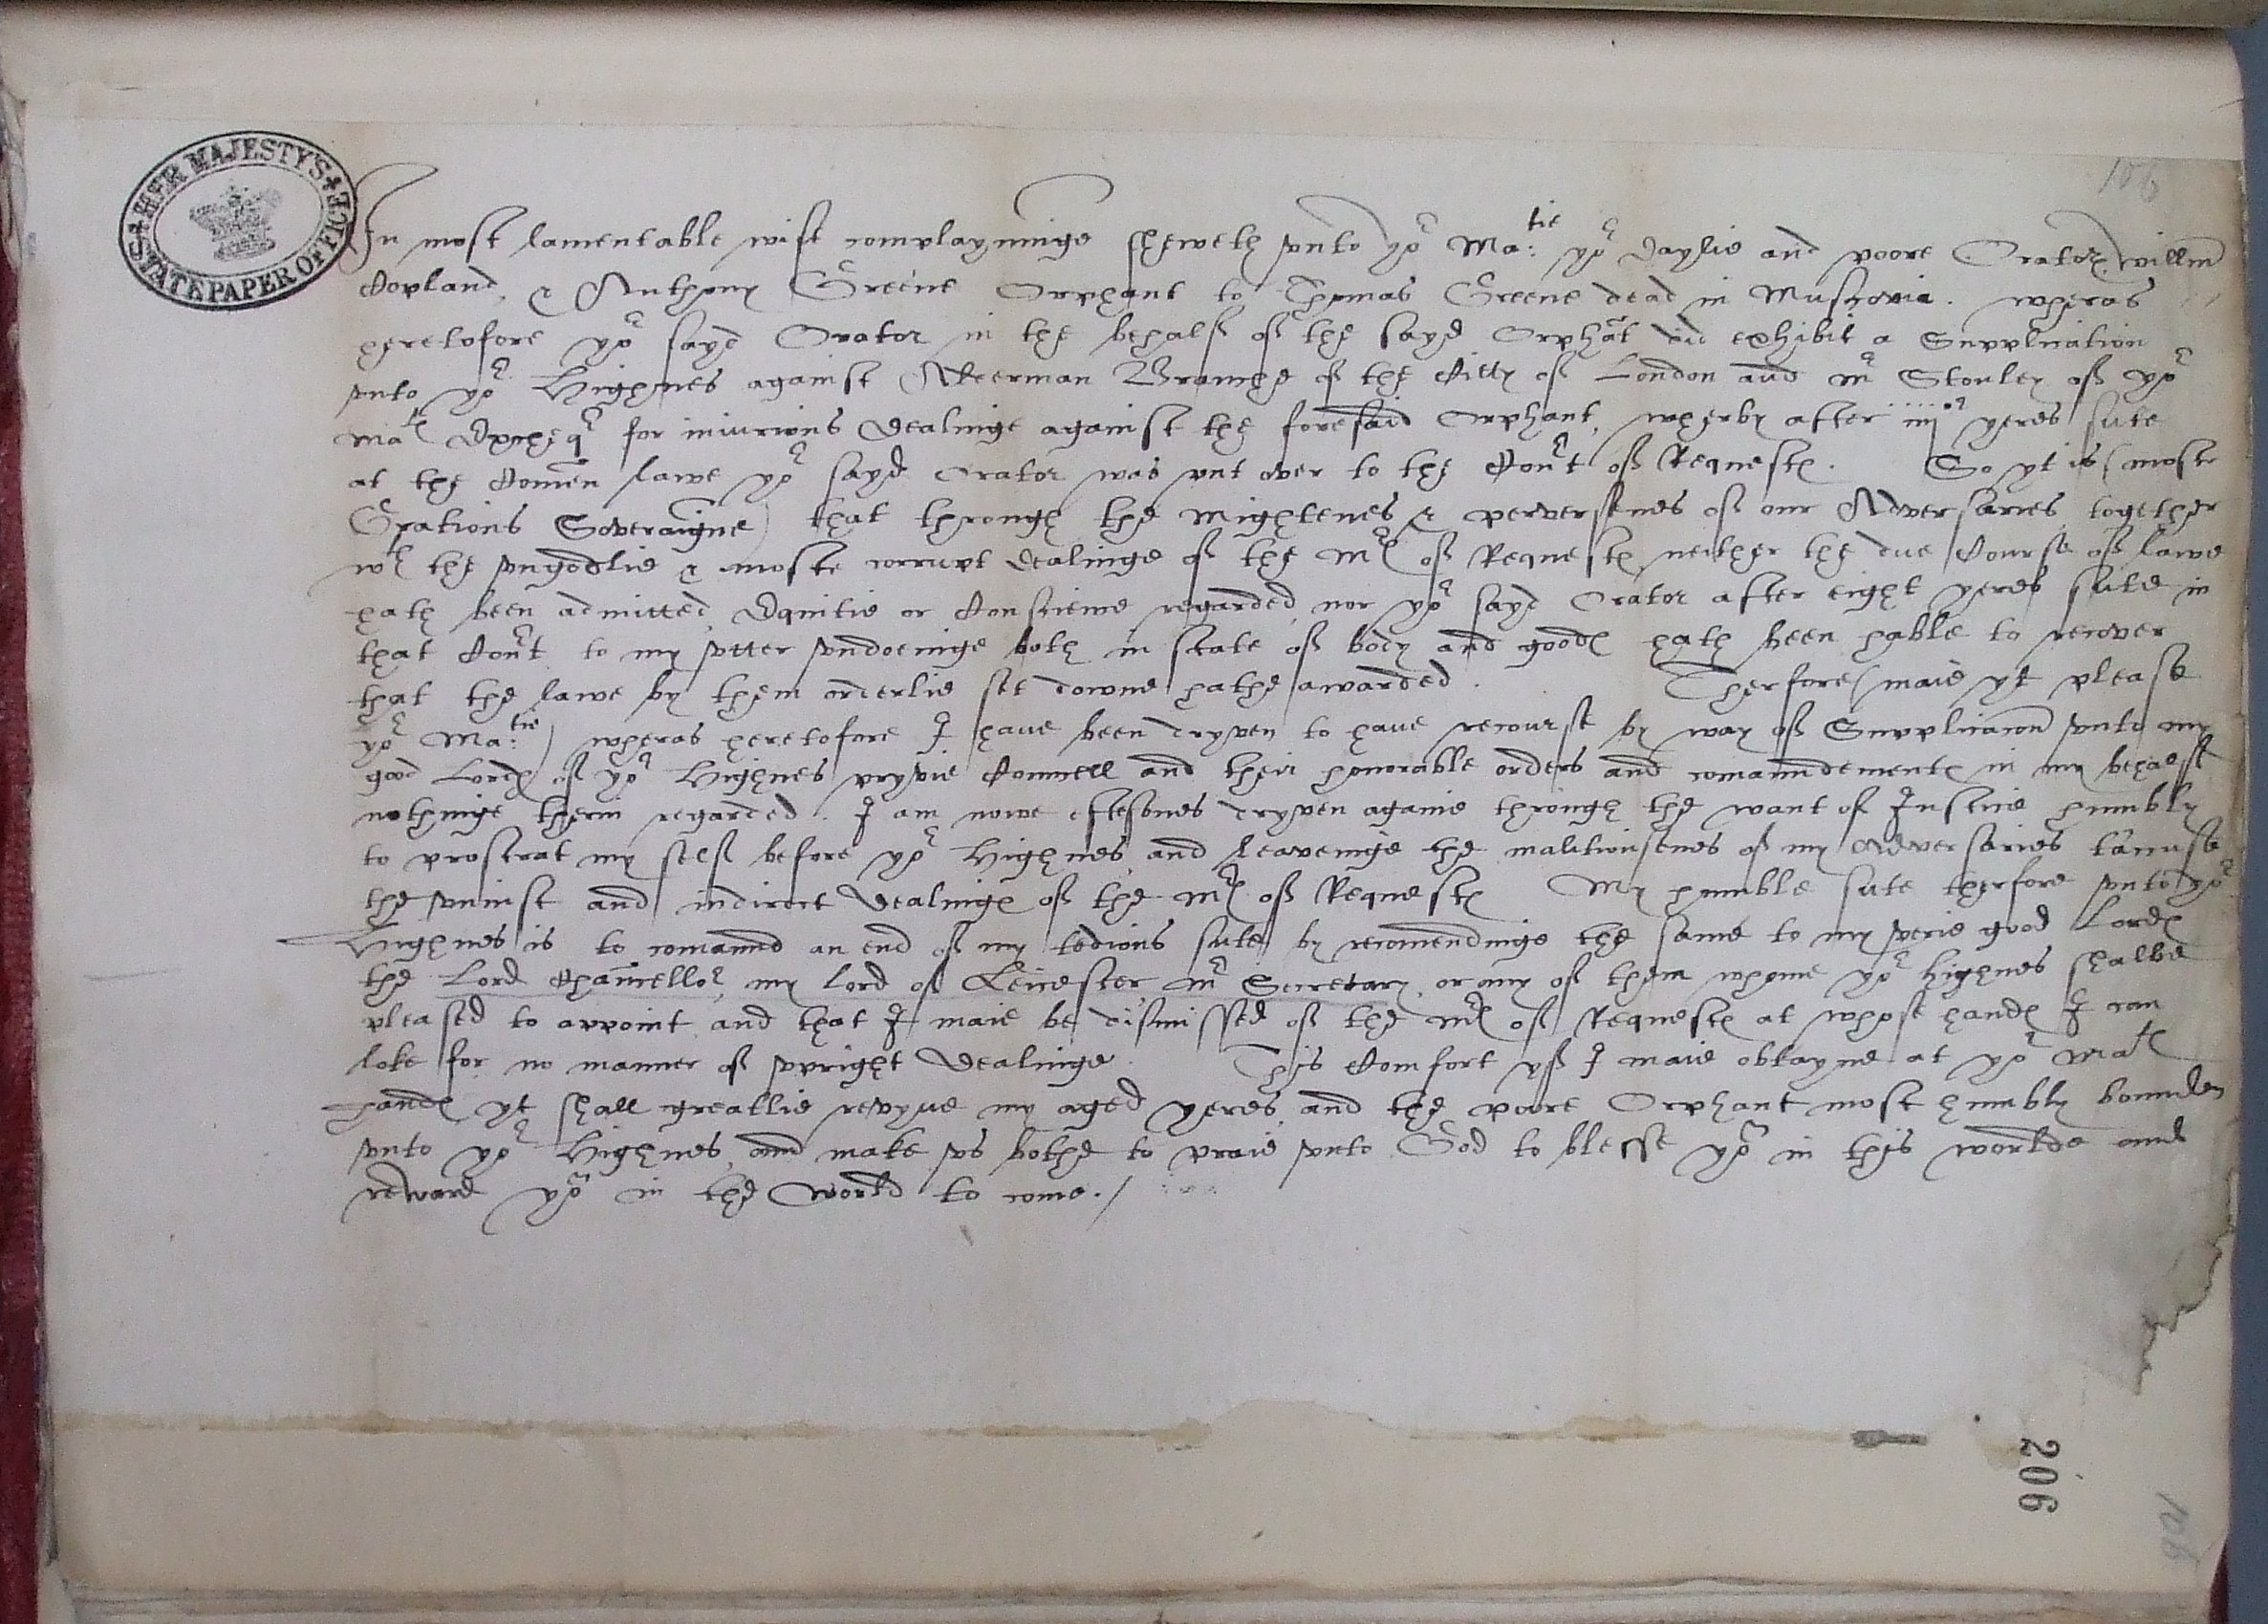 HER MAJESTY'S STATE PAPER OFFICE
106
In most lamentable wise complayninge sheweth vnto yor Ma:tie yor Daylie and poore Orator willm
Copland, & Anthony Greene Orphant to Thomas Greene dead in Muscovia. wheras
heretofore yor sayd Orator in the behalf of the sayd Orphāt did exhibit a Supplication
vnto yor Highnes against Alderman Branche of the Citty of London and mr Stonley of yor
mates Excheqr for iniurious dealinge against the foresaid Orphant, wherby after iiijor yeres sute
at the Comēn lawe yor sayd Orator was put over to the Court of Requestes. So yt is (most
Gratious Soveraigne) that through the mightenes & perversenes of our Adversaries together
wth the vngodlie & moste corrupt dealinge of the Mrs of Requestes neither the due Course of lawe
hath been admitted, Equitie or Conscience regarded, nor yor sayd Orator after eight yeres sute in
that Court to my vtter vndoeinge both in state of body and goodes hath been hable to recover
that the lawe by them orderlie set downe hathe awarded. Therfore (maie yt please
yor Ma:tie) wheras heretofore I haue been dryven to haue recourse by way of Supplicacion vnto my
good Lordes of yor Highnes pryvie Counsell and their honorable orders and comaundementes in my behalfe
nothinge therin regarded. I am nowe eftesones dryven againe through the want of Justice humbly
to prostrat my self before yor Highnes, and leavenige the malitiousenes of my Adversaries t'accuse
the vniust and indirect dealinges of the Mrs of Requestes My humble sute therfore vnto yor
Highnes is to comaund an end of my tedious sute by recomendinge the same to my verie good Lordes
the Lord Chauncellor, my lord of Leicester mr Secretary, or any of them whome yor highnes shalbe
pleased to appoint and that I maie be dismissed of the Mrs of Requestes at whose handes I can
loke for no manner of vpright dealinge. This Comfort yf I maie obtayne at yor Mates
handes yt shall greatlie revyue my aged yeres, and the poore Orphant most humbly bounden
vnto yor Highnes, and make vs bothe to praie vnto God to blesse yow in this worlde and
reward yow in the World to come./
206
106